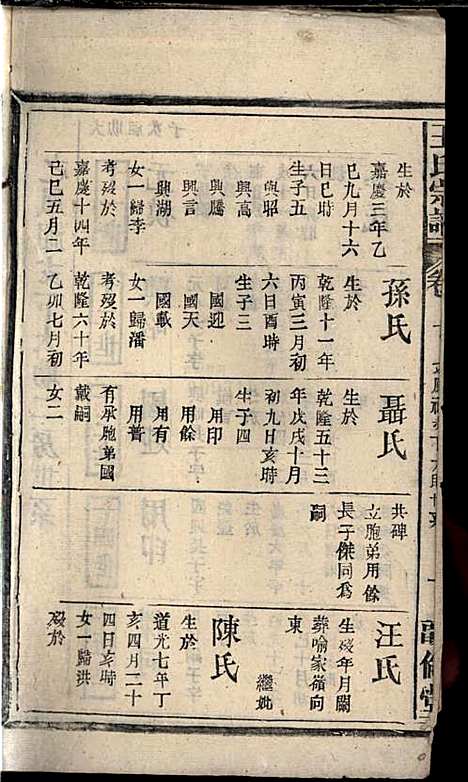 王氏宗譜
卷
生於
嘉慶三年乙
巳九月十六
日巳時
生子五
興昭
興高
興騰
興言
興湖
女一歸李
考歿於
嘉慶十四年
己巳五月二
孫氏
生於
乾隆十一年
丙寅三月初
六日酉時
生子三
國迎
國天
國載
女一歸潘
考歿於
乾隆六十年
乙卯七月初
聶氏
生於
乾隆五十三
年戊戌十月
初九日亥時
生子四
用印
用餘
用有
用普
有承胞弟國
戴嗣
女二
共碑
立胞弟用餘
長子傑同為
嗣
汪氏
生歿年月闕
葬喻家嶺向
東
繼妣
陳氏
生於
道光七年丁
亥四月二十
四日亥時
女一歸洪
歿於